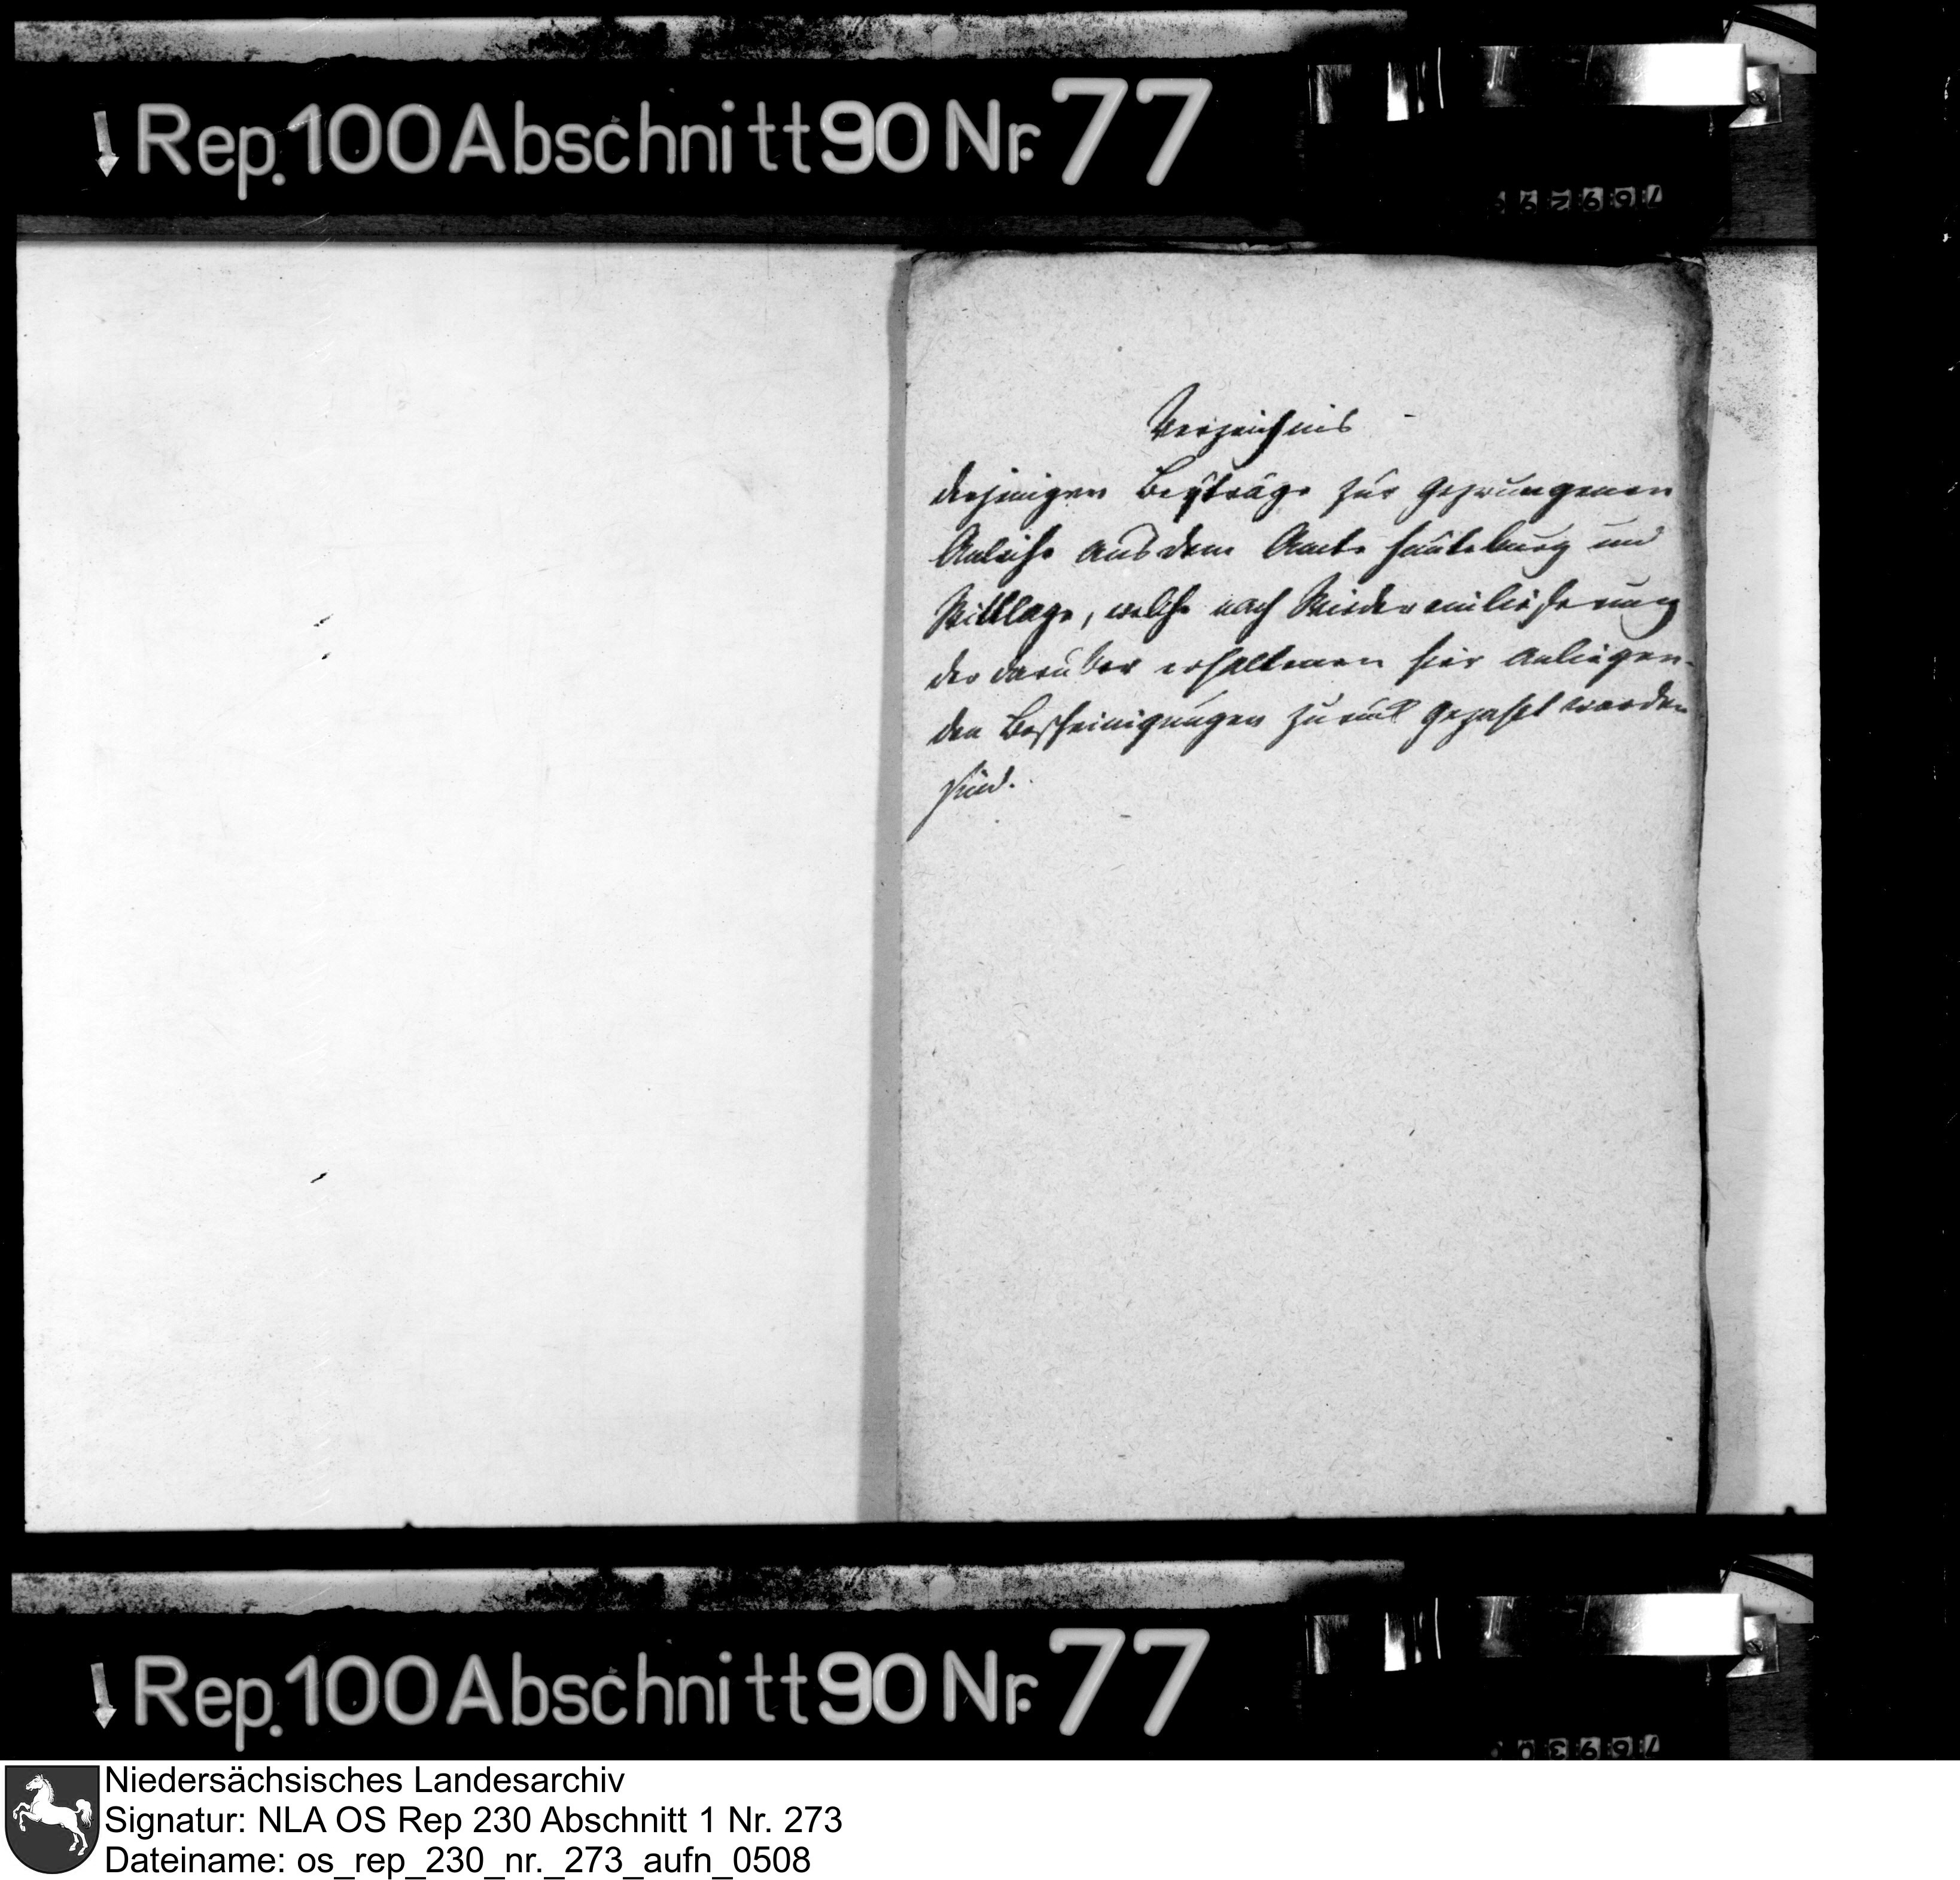 Rep. 100 Abschnitt 90 Nr. 77
Verzeichnis
derjenigen Beyträge zur gezwungenen
Anleihe aus dem Amte Hunteburg und
Wittlage, welche nach Wiedereinlieferung
der darüber erhaltenen hier anliegen-
den Bescheinigungen zurück gezahlt worden
sind.
Rep. 100 Abschnitt 90 Nr. 77
Niedersächsisches Landesarchiv
Signatur: NLA OS Rep 230 Abschnitt 1 Nr. 273
Dateiname: os_rep_230_nr._273_aufn_0508